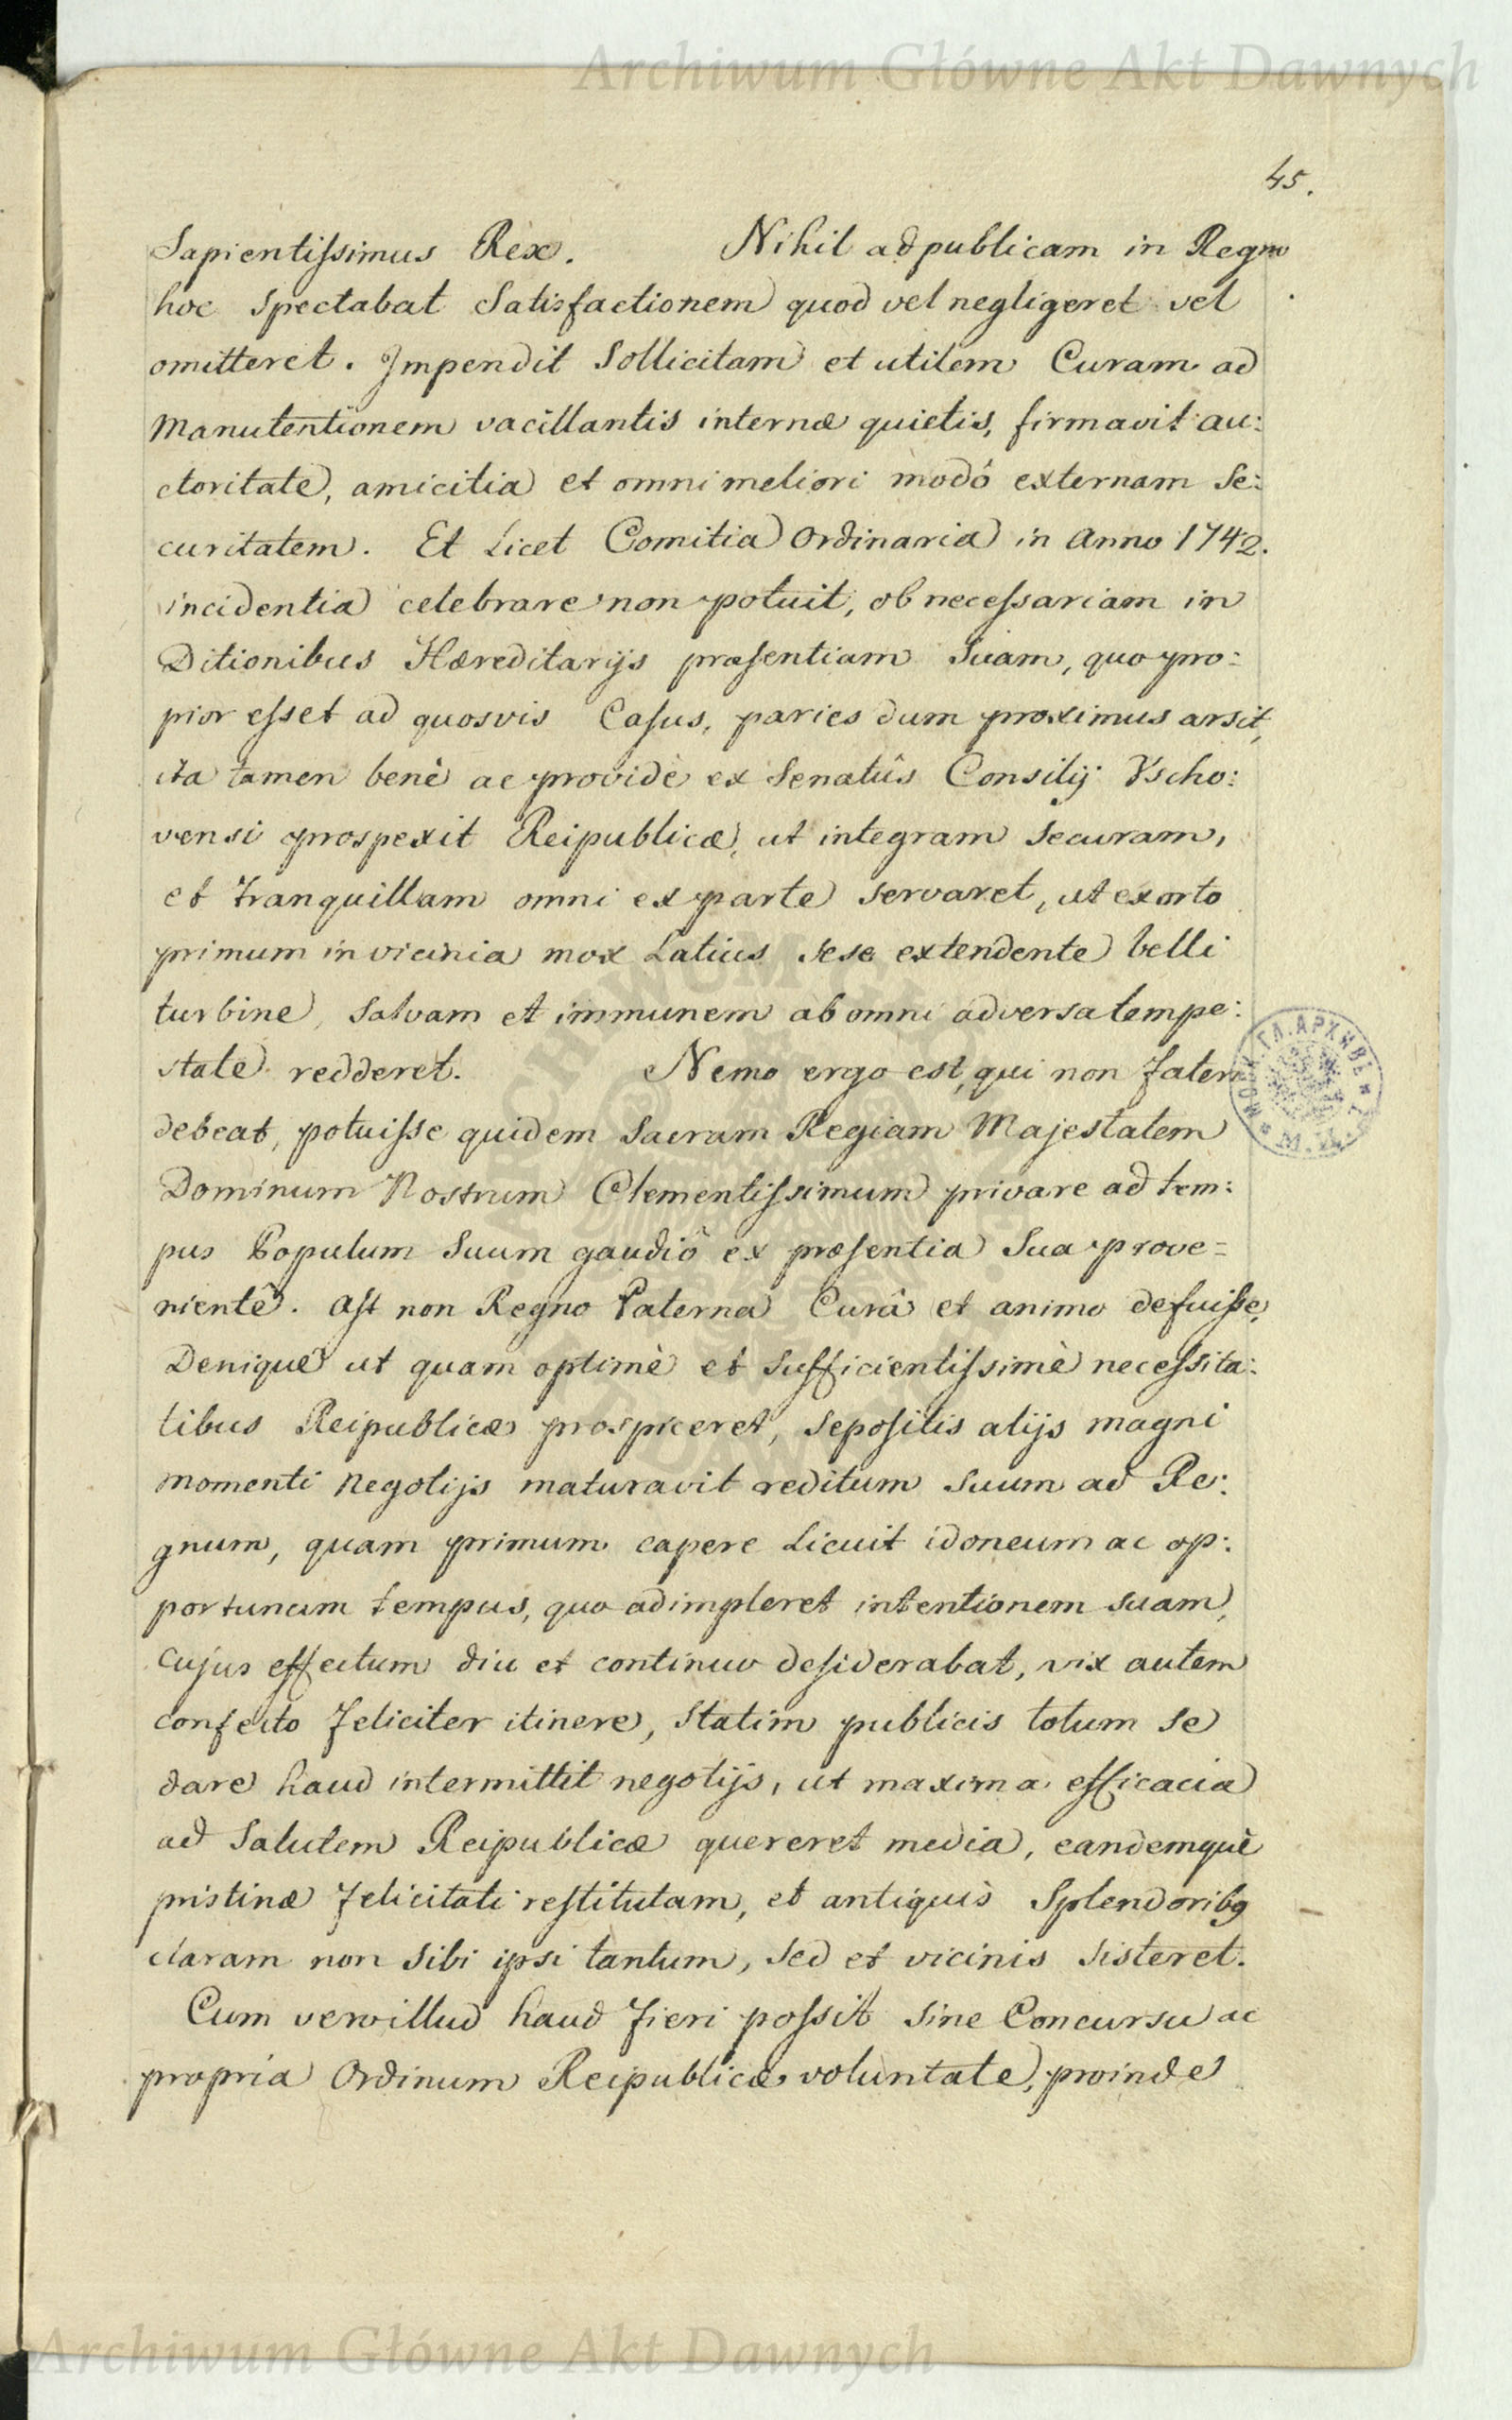 Archiwum Główne Akt Dawnych
45.
Sapientiſsimus Rex. Nihil ad publicam in Regno
hoc spectabat Satisfactionem quod vel negligeret vel
omitteret. Impendit Sollicitam et utilem Curam ad
Manutentionem vacillantis internæ quietis, firmavit au:
ctoritate, amicitia et omni meliori modô externam Se:
curitatem. Et Licet Comitia Ordinaria in Anno 1742.
incidentia celebrare non potuit, ob neceſsariam in
Ditionibus Hæreditarijs præsentiam Suam, quo pro:
pior eſset ad quosvis Casus, paries dum proximus arsit,
ita tamen benè ac providè ex Senatûs Consilij Vscho:
vensi prospexit Reipublicæ, ut integram Securam,
et tranquillam omni ex parte servaret, ut exorto
primum in vicinia mox Latius sese extendente belli
turbine, Salvam et immunem ab omni adversa tempe:
state redderet. Nemo ergo est, qui non fateri
debeat, potuiſse quidem Sacram Regiam Majestatem
Dominum Nostrum Clementiſsimum privare ad tem:
pus Populum Suum gaudiô ex præsentia Sua prove=
nientê. Ast non Regno Paterna Curâ et animo defuiſse,
Deniquè ut quam optimè et Sufficientiſsimè neceſsita:
tibus Reipublicæ prospiceret, Sepositis alijs magni
momenti Negotijs maturavit reditum Suum ad Re:
gnum, quam primum capere Licuit idoneum ac op:
portunum tempus, quo adimpleret intentionem suam,
cujus effectum diu et continuo desiderabat, vix autem
confecto feliciter itinere, Statim publicis totum Se
dare haud intermittit negotijs, ut maxima efficacia
ad Salutem Reipublicæ quereret media, eandemquè
pristinæ felicitati restitutam, et antiquis Splendoribq
claram non Sibi ipsi tantum, Sed et vicinis Sisteret.
Cum vero illud haud fieri poſsit Sine Concursu ac
propria Ordinum Reipublicæ voluntate, proinde
Archiwum Główne Akt Dawnych